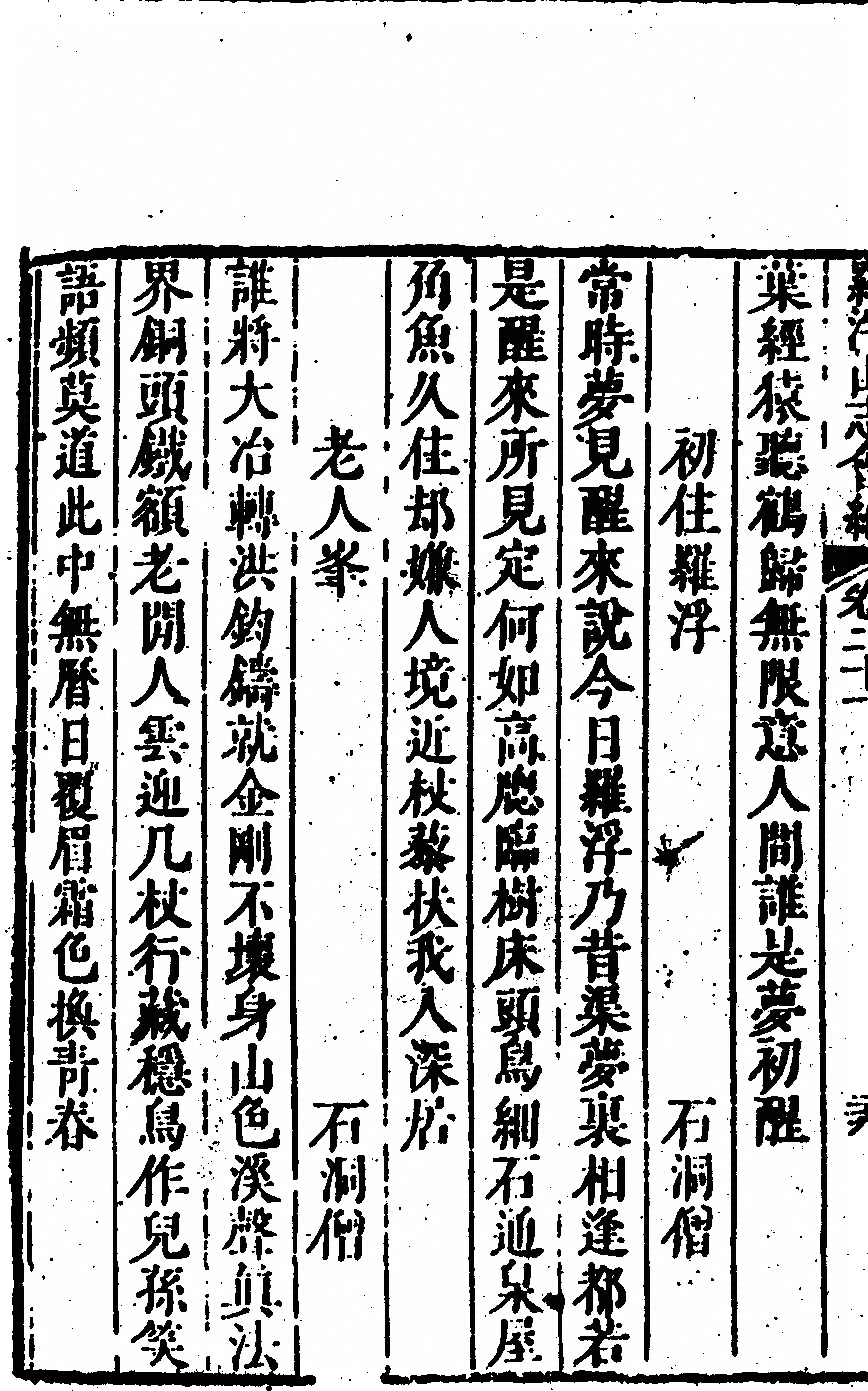 葉經猿聽鶴歸無限意人間誰是夢初醒
初住羅浮 石洞僧
常時夢見醒來說今日羅浮乃昔渠夢裏相逢都若
是醒來所見定何如高牕臨樹床頭鳥細石通泉屋
角魚久住却嫌人境近杖藜扶我入深居
老人峯 石洞僧
誰將大冶轉洪鈞鑄就金剛不壞身山色溪聲眞法
界銅頭鐵額老閒人雲迎几杖行藏穩鳥作兒孫笑
語頻莫道此中無曆日覆眉霜色換青春